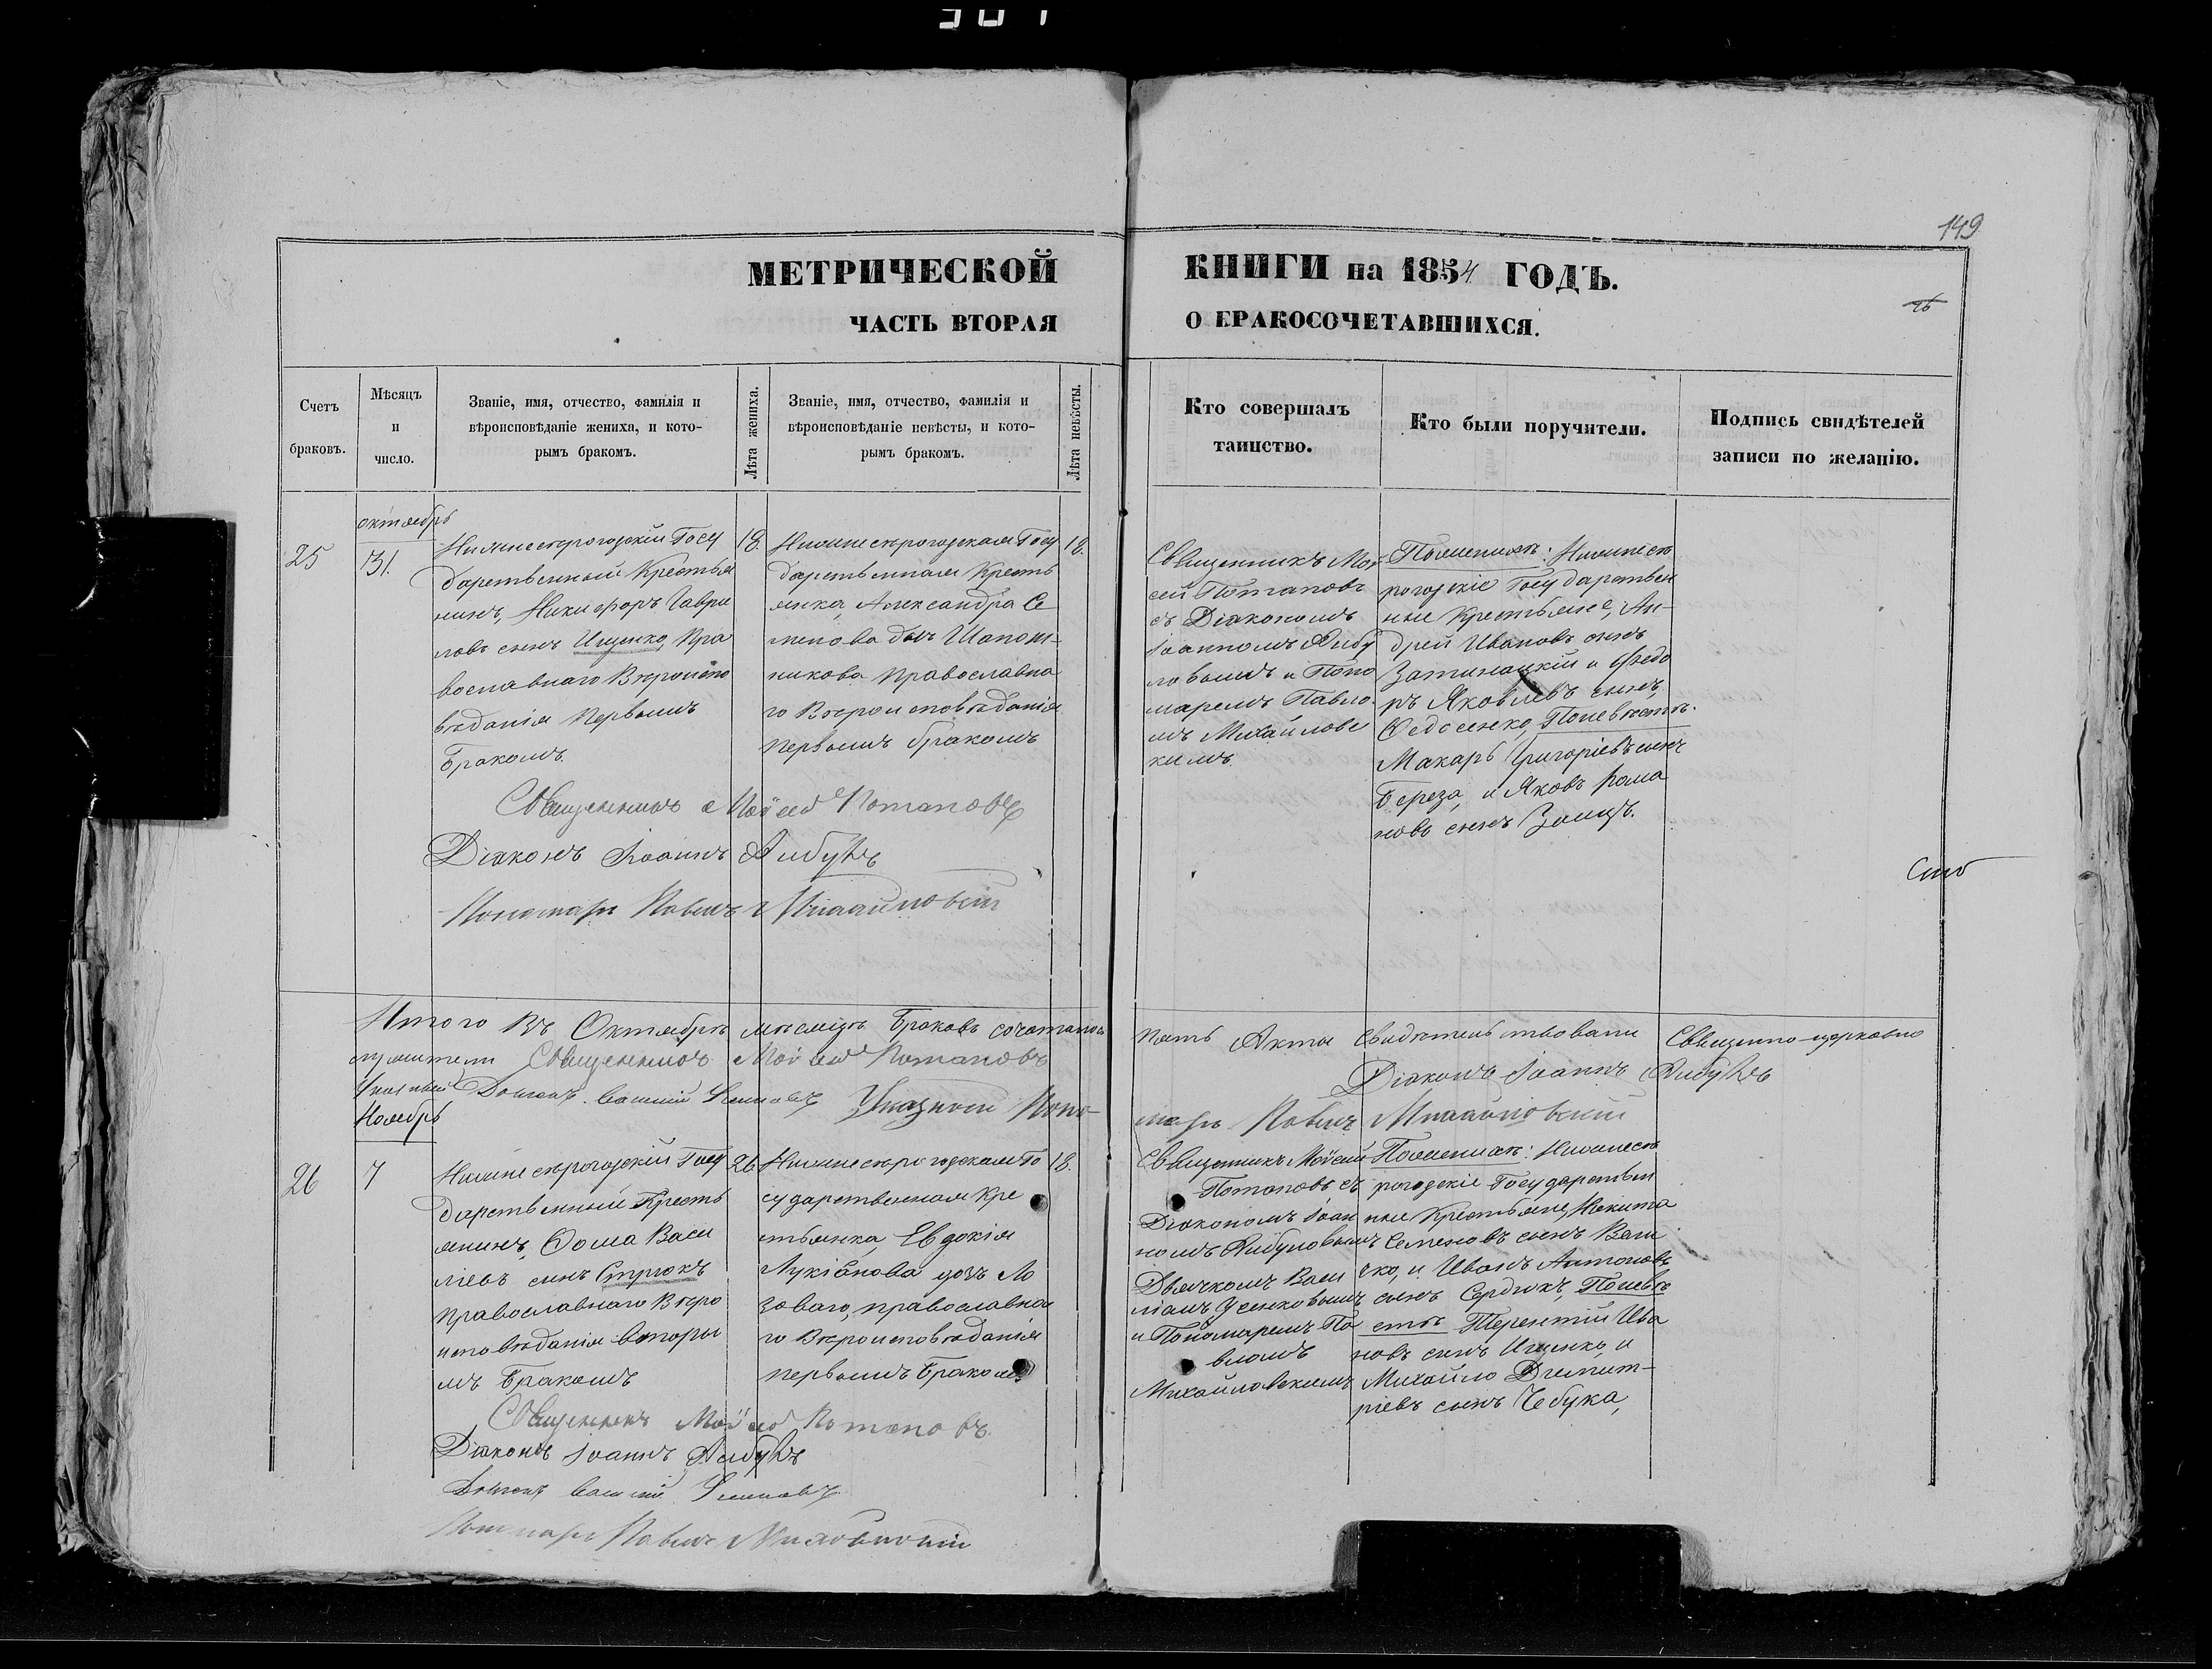 149
МЕТРИЧЕСКОЙ КНИГИ на 1854 ГОДЪ.
ЧАСТЬ ВТОРАЯ О БРАКОСОЧЕТАВШИХСЯ.
26
Счетъ браковъ.
Мѣсяцъ и число.
Званіе, имя, отчество, фамилія и
вѣроисповѣданіе жениха, и кото-
рымъ бракомъ.
Лѣта жениха.
Званіе, имя, отчество, фамилія и
вѣроисповѣданіе невѣсты, и кото-
рымъ бракомъ.
Лѣта невѣсты.
Кто совершалъ
таинство.
Кто были поручители.
Подпись свидѣтелей
записи по желанію.
25
октябрь
31.
Нижнесѣрогозскій Госу
дарственный Крестья
нинъ, Никифоръ Гаври
ловъ сынъ Ищенко, Пра
вославнаго Вѣроиспо
вѣданія Первымъ
Бракомъ.
18.
Нижнесѣрогозская Госу
дарственная Кресть
янка, Александра Се
менова дочь Шапош-
никова Православна
го Вѣроисповѣданія
первымъ бракомъ
18.
Священникъ Мой
сей Потаповъ
съ Діакономъ
Іоанномъ
и Поно
маремъ Павло
мъ Михайловс
кимъ.
По женихѣ: Нижнесѣ
рогозскіе Государствен
ные Крестьяне, Ан-
дрей Ивановъ сынъ
и Ѳедо
ръ Яковлевъ сынъ,
Ѳедосенко, По невѣстѣ.
Макаръ Григоріевъ сынъ
Береза, и Яковъ Рома
новъ сынъ Заицъ.
Священникъ Моѵсей Потаповъ
Діаконъ Іоаннъ
Пономарь Павелъ Михайловскій
Сто
Итого Въ Октябрѣ мѣсяцѣ Браковъ сочетано
пять Акты свидѣтельствовали Священно-церковно
служители Священникъ Моѵсей Потаповъ
Діаконъ Іоаннъ
Указный Поно-
марь Павелъ Михайловскій
26
Ноябрь
7
Нижнесѣрогозскій Госу
дарственный Кресть
янинъ, Ѳома Васи
ліевъ сынъ Стрюкъ
православнаго Вѣро
исповѣданія вторы
мъ Бракомъ
26
Нижнесѣрогозская Го
сударственная Кре
стьянка, Евдокія
Лукіанова дочь Ло
зоваго, православна
го Вѣроисповѣданія
первымъ Бракомъ
18.
Священникъ Мойсей
Потаповъ съ
Діакономъ Іоан
номъ
Дьячкомъ Васи
ліемъ Усенковымъ
и Пономаремъ Па
вломъ
Михайловскимъ
По женихѣ: Нижнесѣ
рогозскіе Государствен
ные Крестьяне, Никита
Семеновъ сынъ Вели
чко, и Иванъ Антоновъ
сынъ Сердюкъ, По невѣ
стѣ Терентій Ива
новъ сынъ Ищенко, и
Михайло Димит-
ріевъ сынъ Чебука,
Священникъ Моѵсей Потаповъ.
Діаконъ Іоаннъ
Пономарь Павелъ Михайловскій